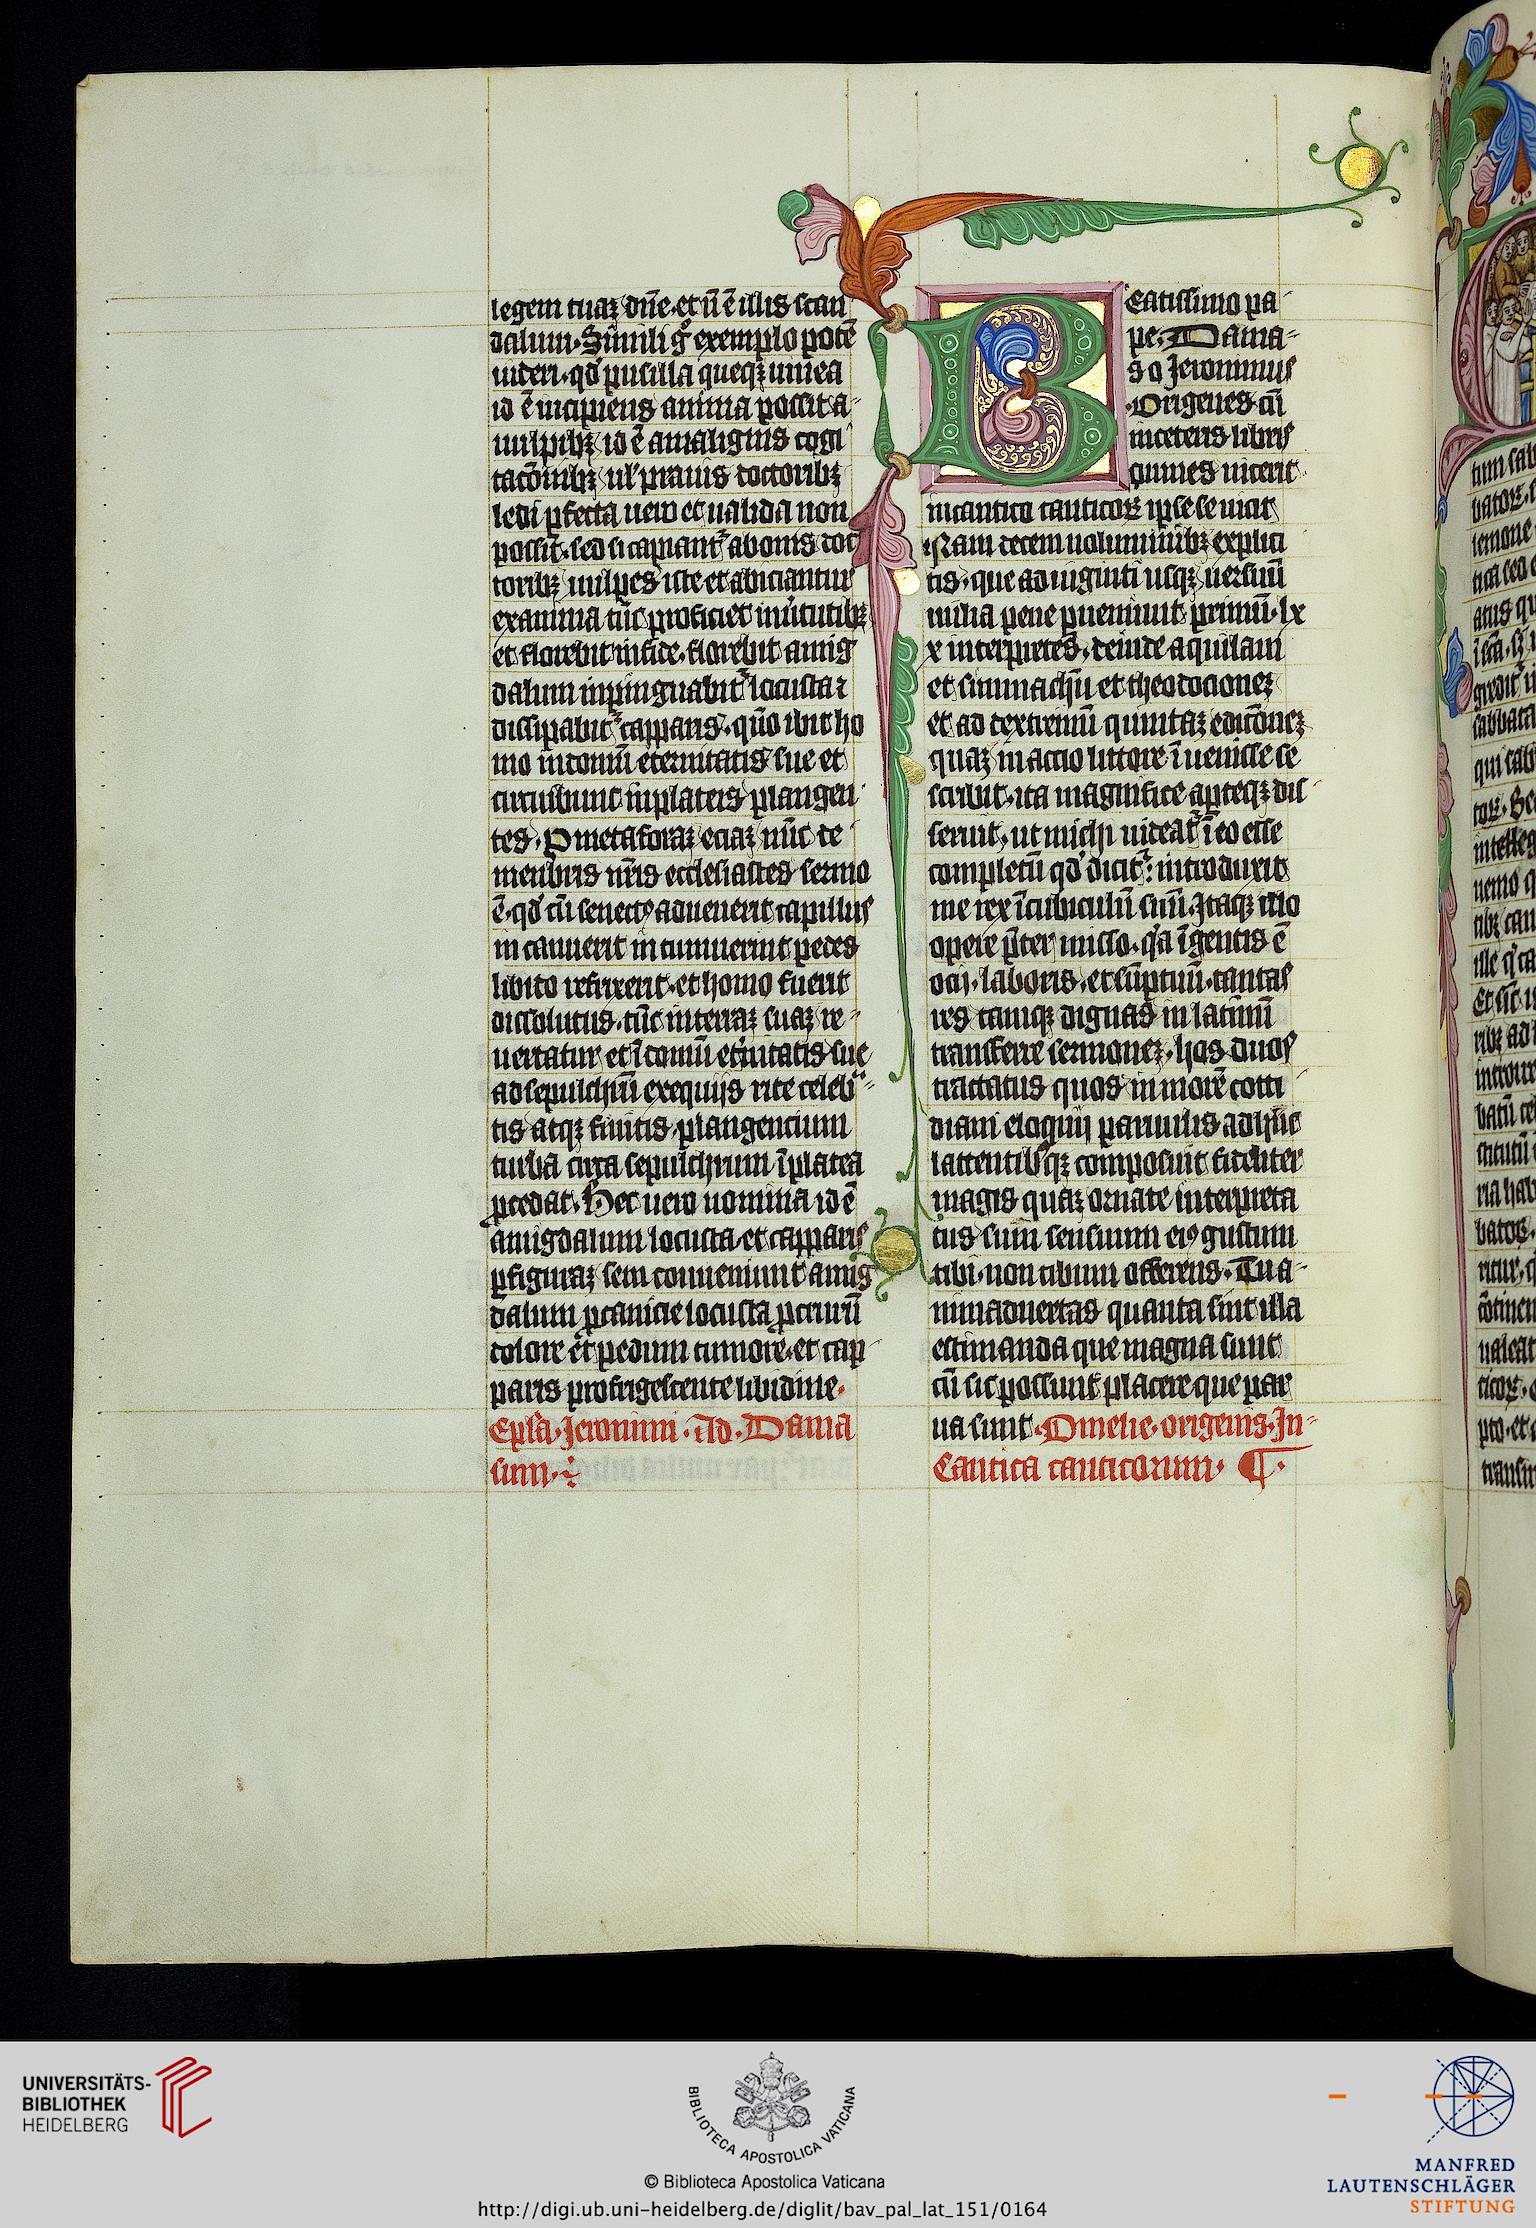 legem tuaꝫ dn̄e. et n̄ ē illis scan
dalum. Simili gͦ exemplo potē
uideri. qd̓ pusilla queqꝫ uinea
id ē incipiens anima possit a-
uulpibꝫ id ē a malignis cogi
tac̄onibꝫ ul̓ prauis doctoribꝫ
ledi ꝑfecta uero et ualida non
possit. sed si capiant᷑ a bonis doc
toribꝫ uulpes iste et abiciantur
ex anima tūc proficiet in ūtutibꝫ
et florebit in fide. florebit amig
dalum inpinguabit᷑ locusta ⁊
dissipabit᷑ capparis. qm̄o ibit ho
mo in domū eternitatis sue et
circuibunt in plateis plangen
tes. P metaforaꝫ eciaꝫ nūc de
menbris nr̄is ecclesiastes sermo
ē. qd̓ cū senectꝰ aduenerit capillus
in canuerit in tumuerint pedes
libito refrixerit. et homo fuerit
dissolutus. tūc in terraꝫ suaꝫ re-
uertatur et ī domū et̓nitatis sue
ad sepulchrū exequijs rite celeb̾-
tis atqꝫ finitis. plangencium
turba circa sepulchrum ī platea
ꝓcedat. Hec uero nomina id ē
amigdalum locusta et capparis
ꝑ figuraꝫ sem conueniunt amig
dalum ꝓ canicie locusta ꝓ cruru̅
dolore et pedum tumore. et cap
paris pro frigescente libidine.
Epl̄a. Jeronimi. Ad. Dama
sum.
Beatissimo pa
pe. Dama-
so Jeronimus
Origenes cū
in ceteris libris
omnes uicerit
in cantico canticoꝝ ipse se uicit
Nam decem uoluminibꝫ explici
tis. que ad uiginti usqꝫ uersuū
milia pene ꝑueniunt. primū. lx
x interpretes. deinde aquilam
et simmachū et theodocioneꝫ
et ad extremū quintaꝫ edic̄oneꝫ
quaꝫ in actio littore ī uenisse se
scribit. ita magnifice aperteqꝫ dis
seruit. ut michi uideat᷑ ī eo esse
completū qd̓ dicit᷑: introduxit
me rex ī cubiculū suū. Itaqꝫ illo
opere p̄ter misso. qͥa īgentis ē
ocij. laboris. et sūptuū. tantas
res tamqꝫ dignas in latinū
transferre sermoneꝫ. hos duos
tractatus quos in morē cotti
diani eloquij paruulis adhuc
lactentibꝰqꝫ composuit fideliter
magis quaꝫ ornate interpreta
tus sum sensuum eiꝰ gustum
tibi. non cibum offerens. Tu a-
nimaduertas quanta sint illa
estimanda que magna sunt
cū sic possunt placere que par
ua sunt. Omelie. origenis. In-
Cantica canticorum.
UNIVERSITÄTS-
BIBLIOTHEK
HEIDELBERG
BIBLIOTECA APOSTOLICA VATICANA
© Biblioteca Apostolica Vaticana
http://digi.ub.uni-heidelberg.de/diglit/bav_pal_lat_151/0164
MANFRED
LAUTENSCHLÄGER
STIFTUNG